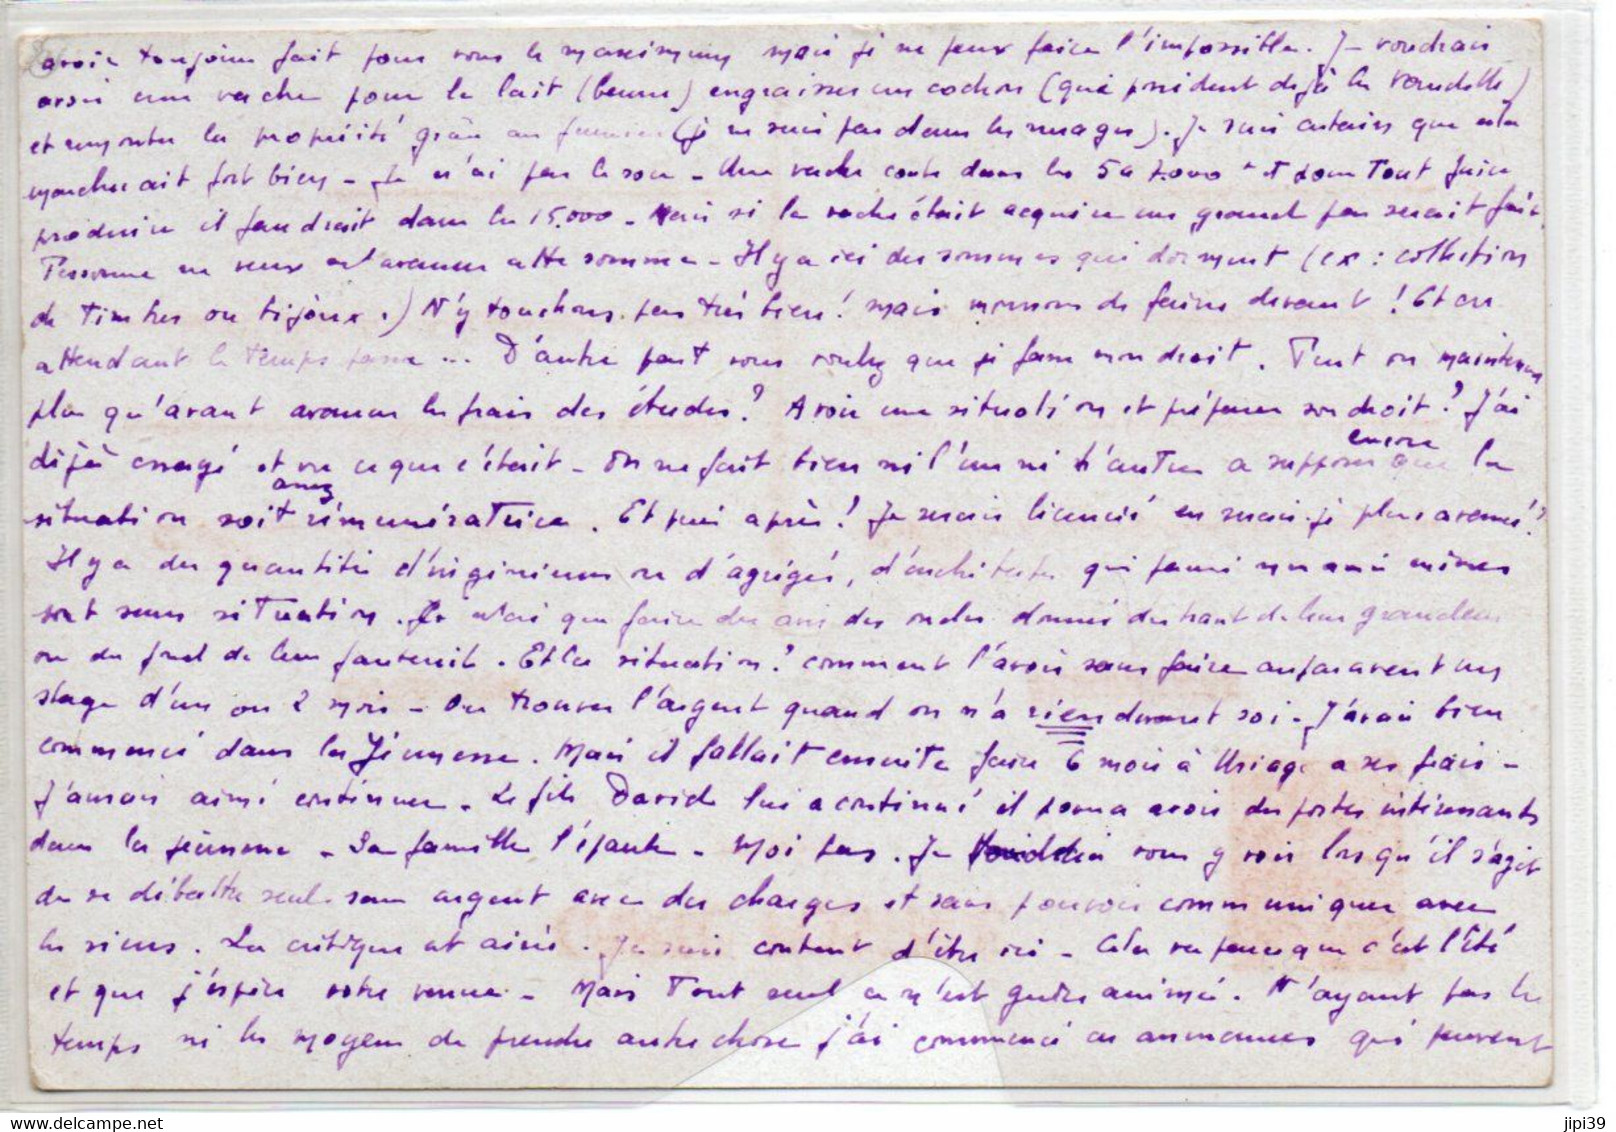 avoir toujours fait pour vous le maximum mais je ne peux faire l'impossible. Je voudrais
avoir une vache pour le lait (beurre) engraisser un cochon (que possèdent déjà les
et remonter la propriété grâce au fumier (je ne suis pas dans les nuages). Je suis certain que cela
marcherait fort bien - Je n'ai pas le sou - Une vache coûte dans les 5 à 7.000 et pour tout faire
produire il faudrait dans les 15.000 - Mais si la vache était acquise un grand pas serait fait.
Personne ne veut avancer cette somme - Il y a ici des sommes qui dorment (ex: collection
de timbres ou bijoux.) N'y touchons pas très bien! mais mourrons de faim devant! Et en
attendant le temps passe ... D'autre part vous voulez que je fasse mon droit. Peut on maintenant
plus qu'avant avancer les frais des études? Avoir une situation et préparer son droit? J'ai
déjà essayé et vu ce que c'était - On ne fait bien ni l'un ni l'autre a supposer encore que la
situation soit assez rémunératrice. Et puis après! Je serais licencié en serais-je plus avancé?
Il y a des quantités d'ingénieurs ou d'agrégés, d'architectes qui parmi mes amis mêmes
sont sans situation. Je n'ai que faire des avis des oncles donnés du haut de leur grandeur
ou du fond de leur fauteuil. Et la situation? comment l'avoir sans faire auparavant un
stage d'un ou 2 mois - Ou trouver l'argent quand on n'a rien devant soi - J'avais bien
commencé dans la Jeunesse. Mais il fallait ensuite faire 6 mois à Uriage a ses frais -
J'aurais aimé continuer. Le fils David lui a continué il pourra avoir des postes intéressants
dans la jeunesse - Sa famille l'épaule - Moi pas. Je vous y vois lorsqu'il s'agit
de se débattre seul sans argent avec des charges et sans pouvoir communiquer avec
les siens. La critique est aisée. Je suis content d'être ici - Cela va parce que c'est l'été
et que j'espère votre venue - Mais tout seul ce n'est guère animé. N'ayant pas le
temps ni les moyens de prendre autre chose j'ai commencé ces annonces qui peuvent
jipi39
www.delcampe.net